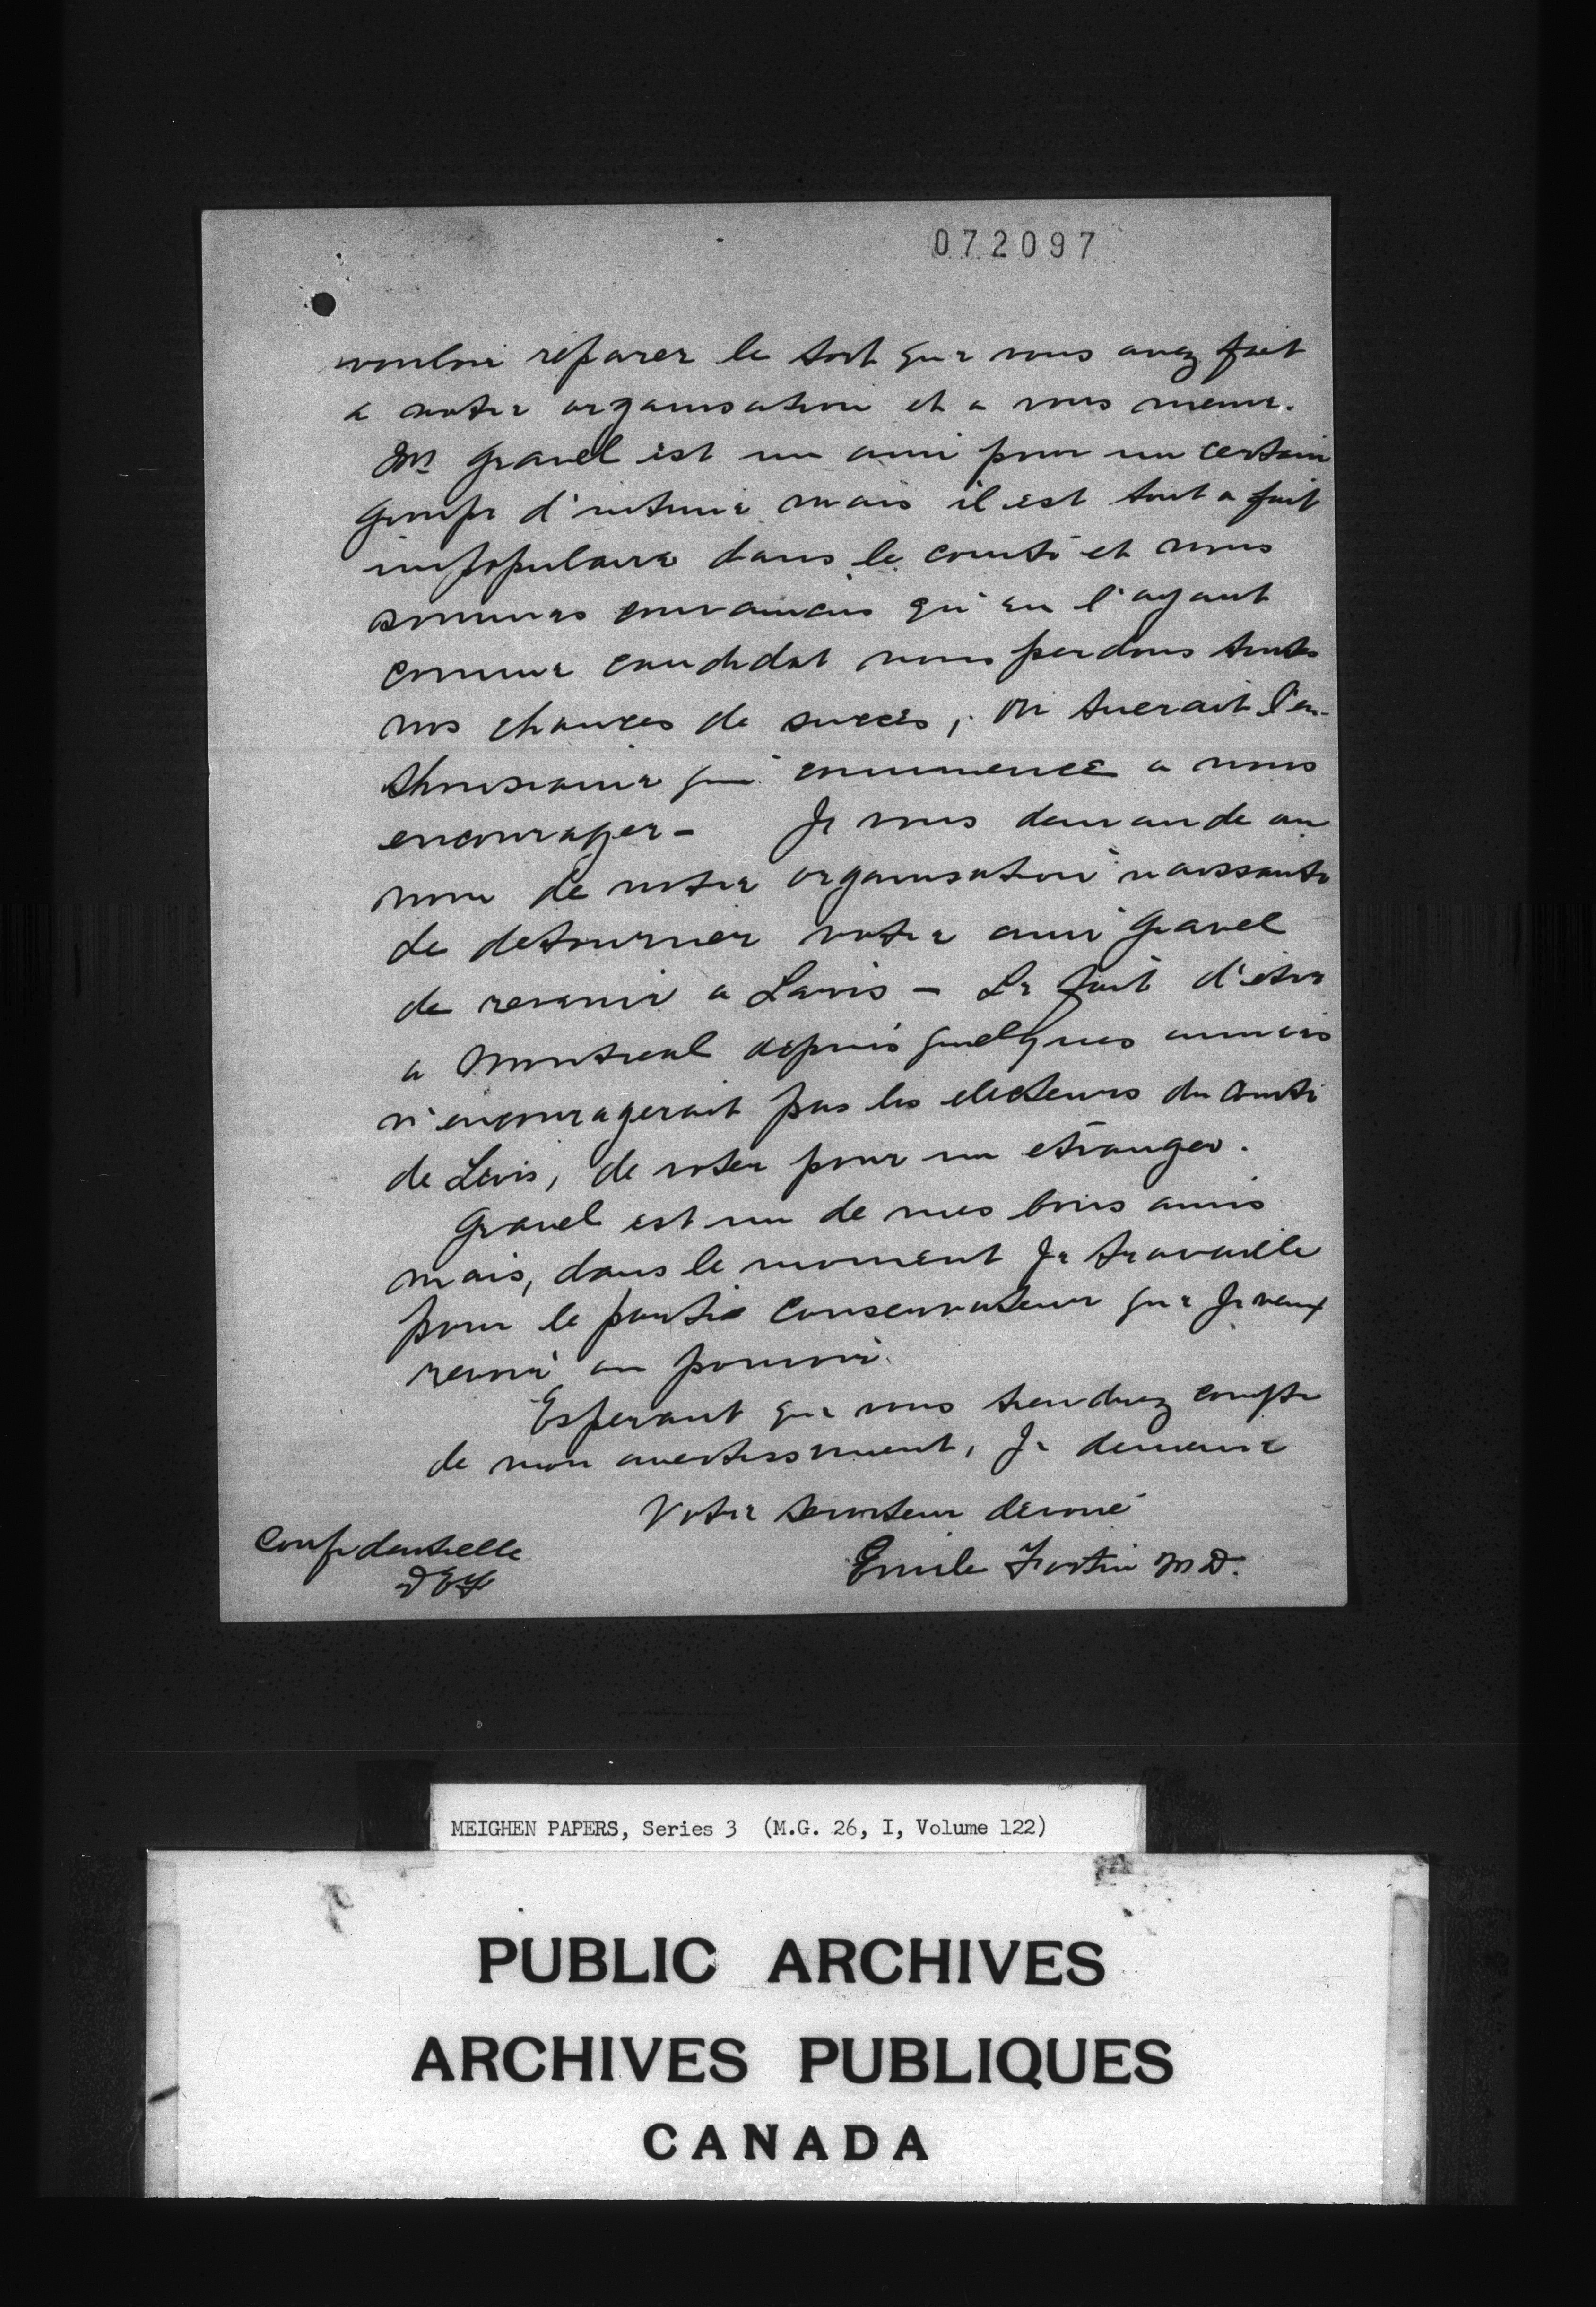 072097
vouloir réparer le tort que vous avez fait
a notre organisation et a vous meme.
Mr Gravel est un ami pour un certain
groupe d'intime mais il est tout a fait
impopulaire dans le comté et nous
sommes convaincus qu'en l'ayant
comme candidat nous perdons toutes
nos chances de succès, on tuerait l'en-
thousiasme qui commence a nous
encourager - Je vous demande au
nom de notre organisation naissante
de detourner votre ami Gravel
de revenir a Levis - Le fait d'etre
a Montreal depuis quelques années
n'encouragerait pas les electeurs du comté
de Levis, de voter pour un etranger.
Gravel est un de mes bons amis
mais, dans le moment Je travaille
pour le parti conservateur que Je veux
revoir au pouvoir.
Esperant que vous tiendrez compte
de mon avertissement, Je demeure
Votre serviteur dévoué
Emile Fortin M.D.
Confidentielle
MEIGHEN PAPERS, Series 3 (M.G. 26, I, Volume 122)
PUBLIC ARCHIVES
ARCHIVES PUBLIQUES
CANADA